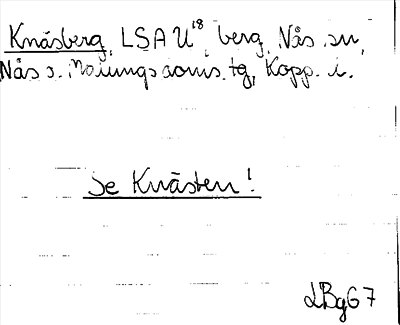 Knäsberg, LSA U¹⁸, berg, Nås sn,
Nås s. Malungs doms. tg, Kopp. l.
Se Knästen!
LBg67